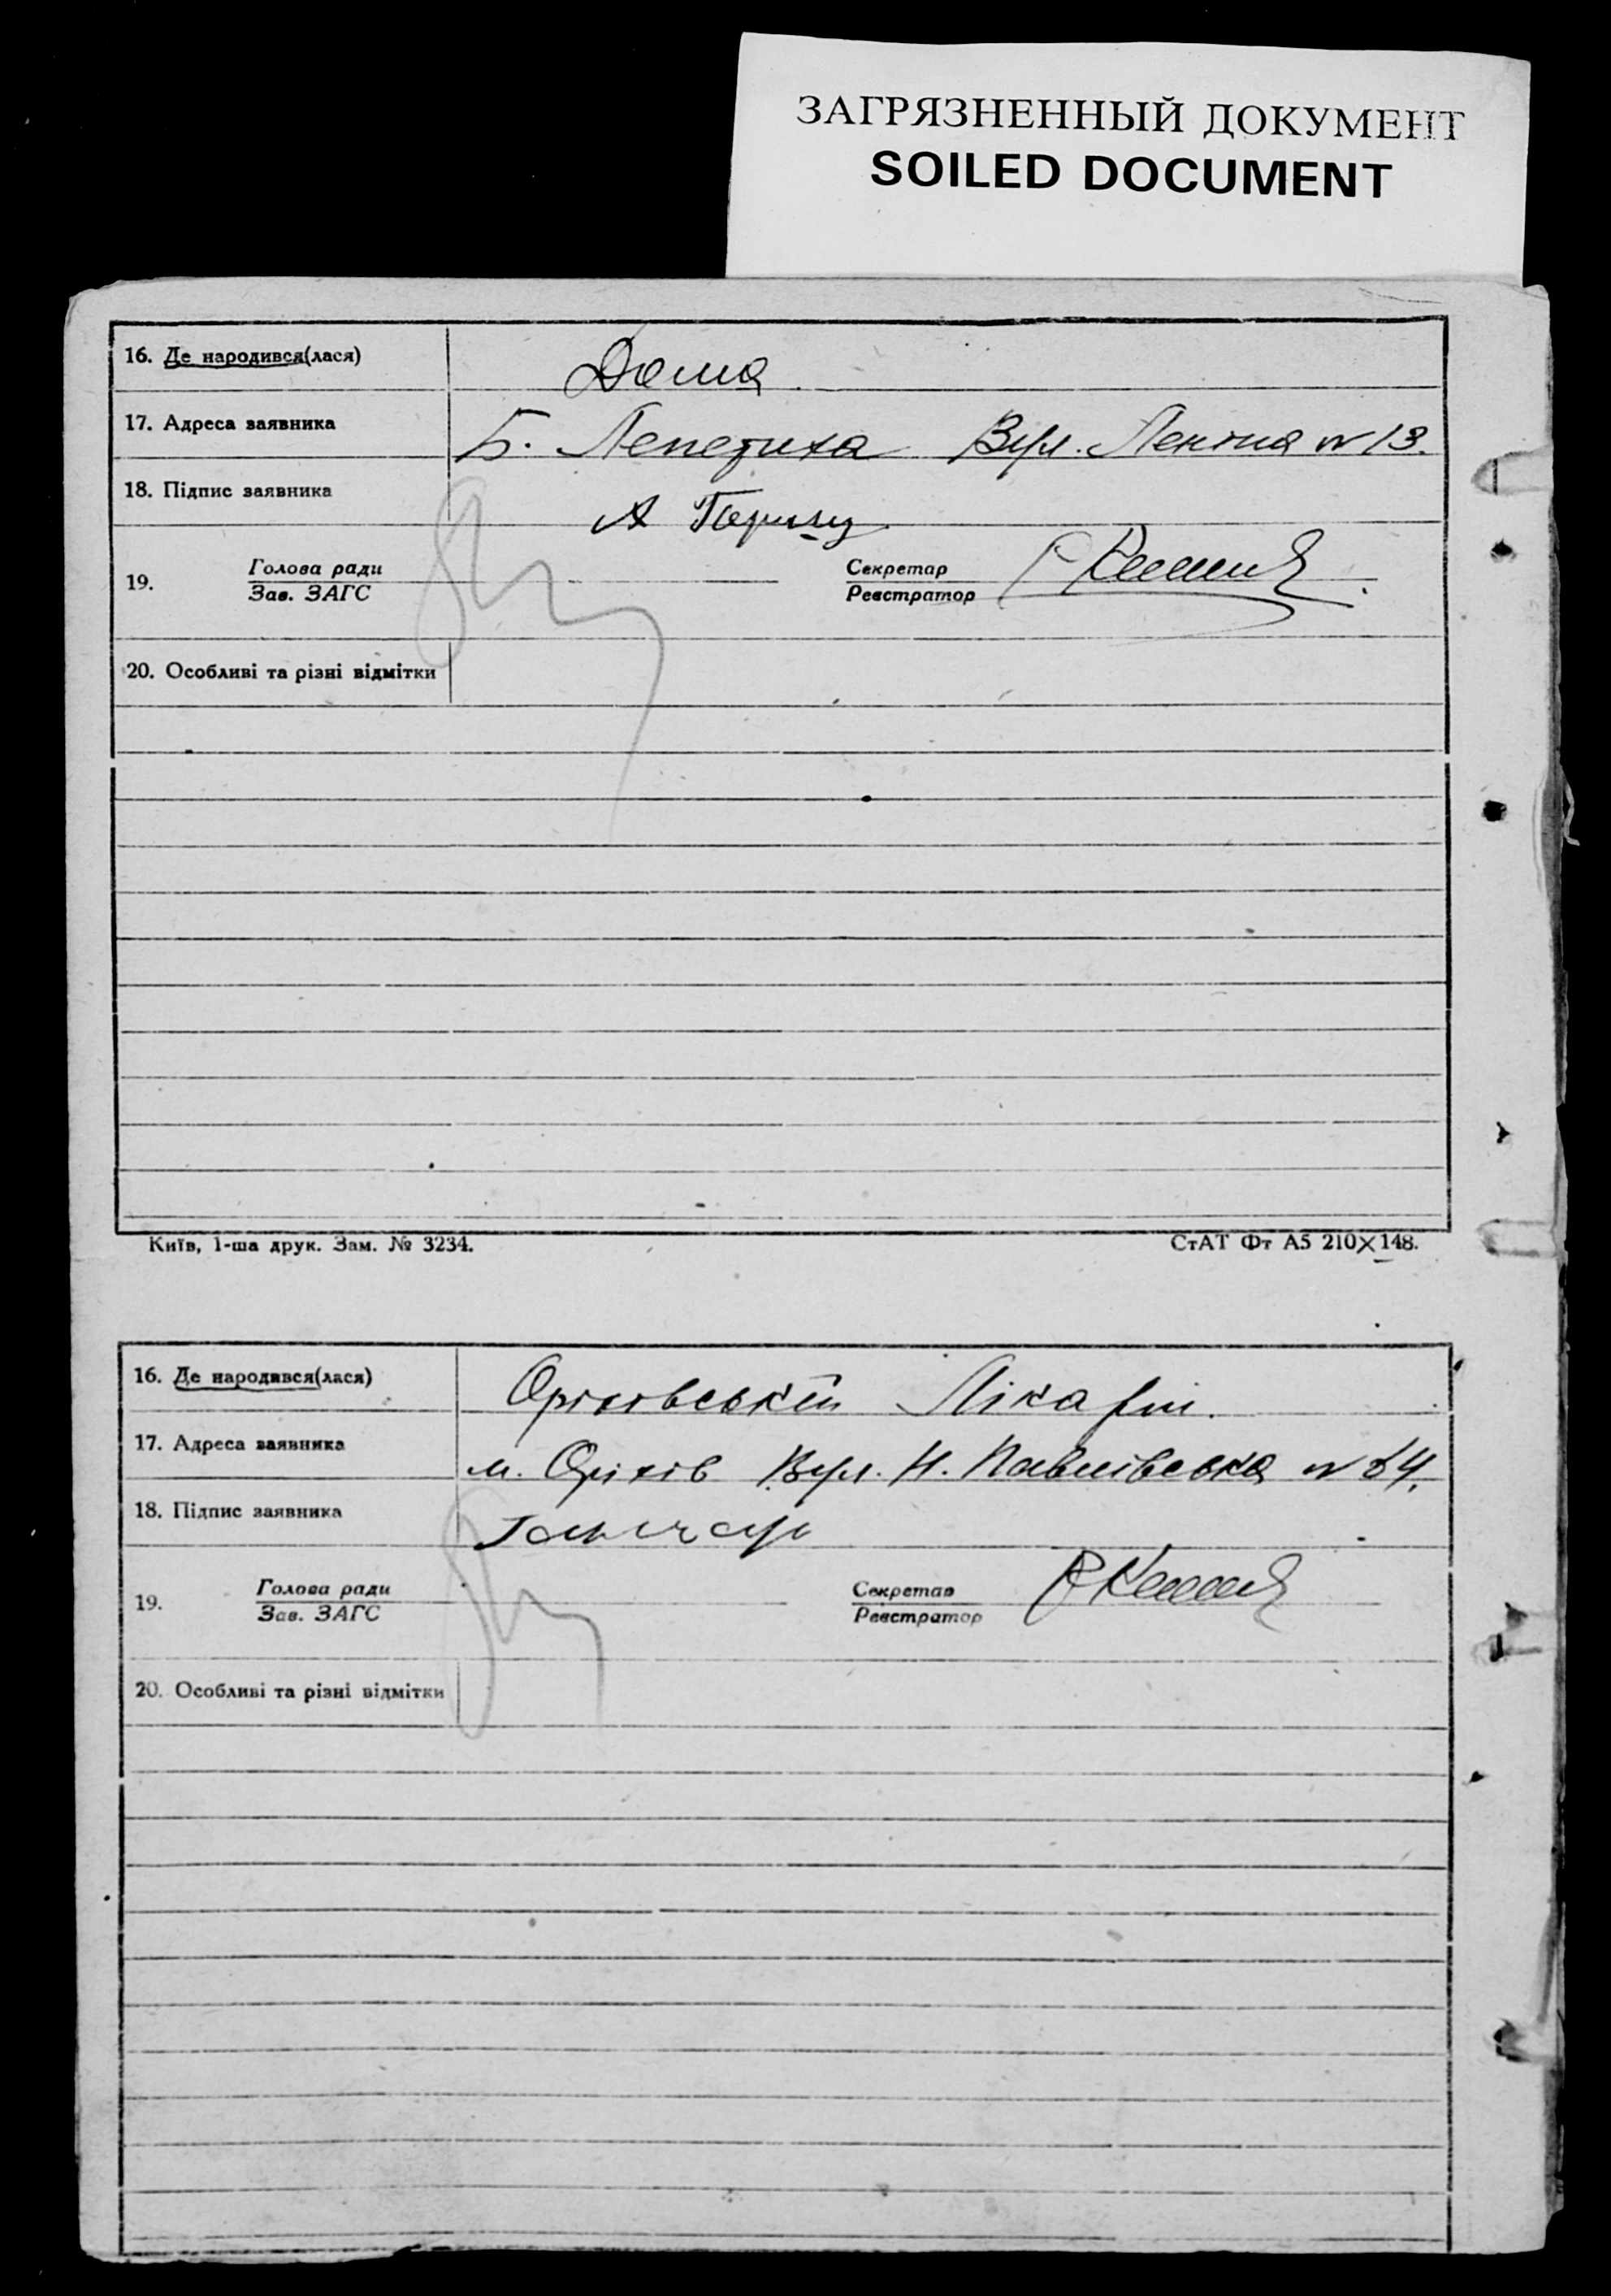 ЗАГРЯЗНЕННЫЙ ДОКУМЕНТ
SOILED DOCUMENT
16. Де народився(лася) Дома
17. Адреса заявника Б. Лепетиха Вул. Леніна № 13.
18. Підпис заявника А
19. Голова ради Секретар
Зав. ЗАГС Реєстратор
20. Особливі та різні відмітки
Київ, 1-ша друк. Зам. № 3234. СтАТ Фт А5 210×148.
16. Де народився(лася) Оріхівській Лікарні.
17. Адреса заявника м. Оріхів Вул. Н. Павлівська № 84.
18. Підпис заявника Гончар
19. Голова ради Секретар
Зав. ЗАГС Реєстратор
20. Особливі та різні відмітки